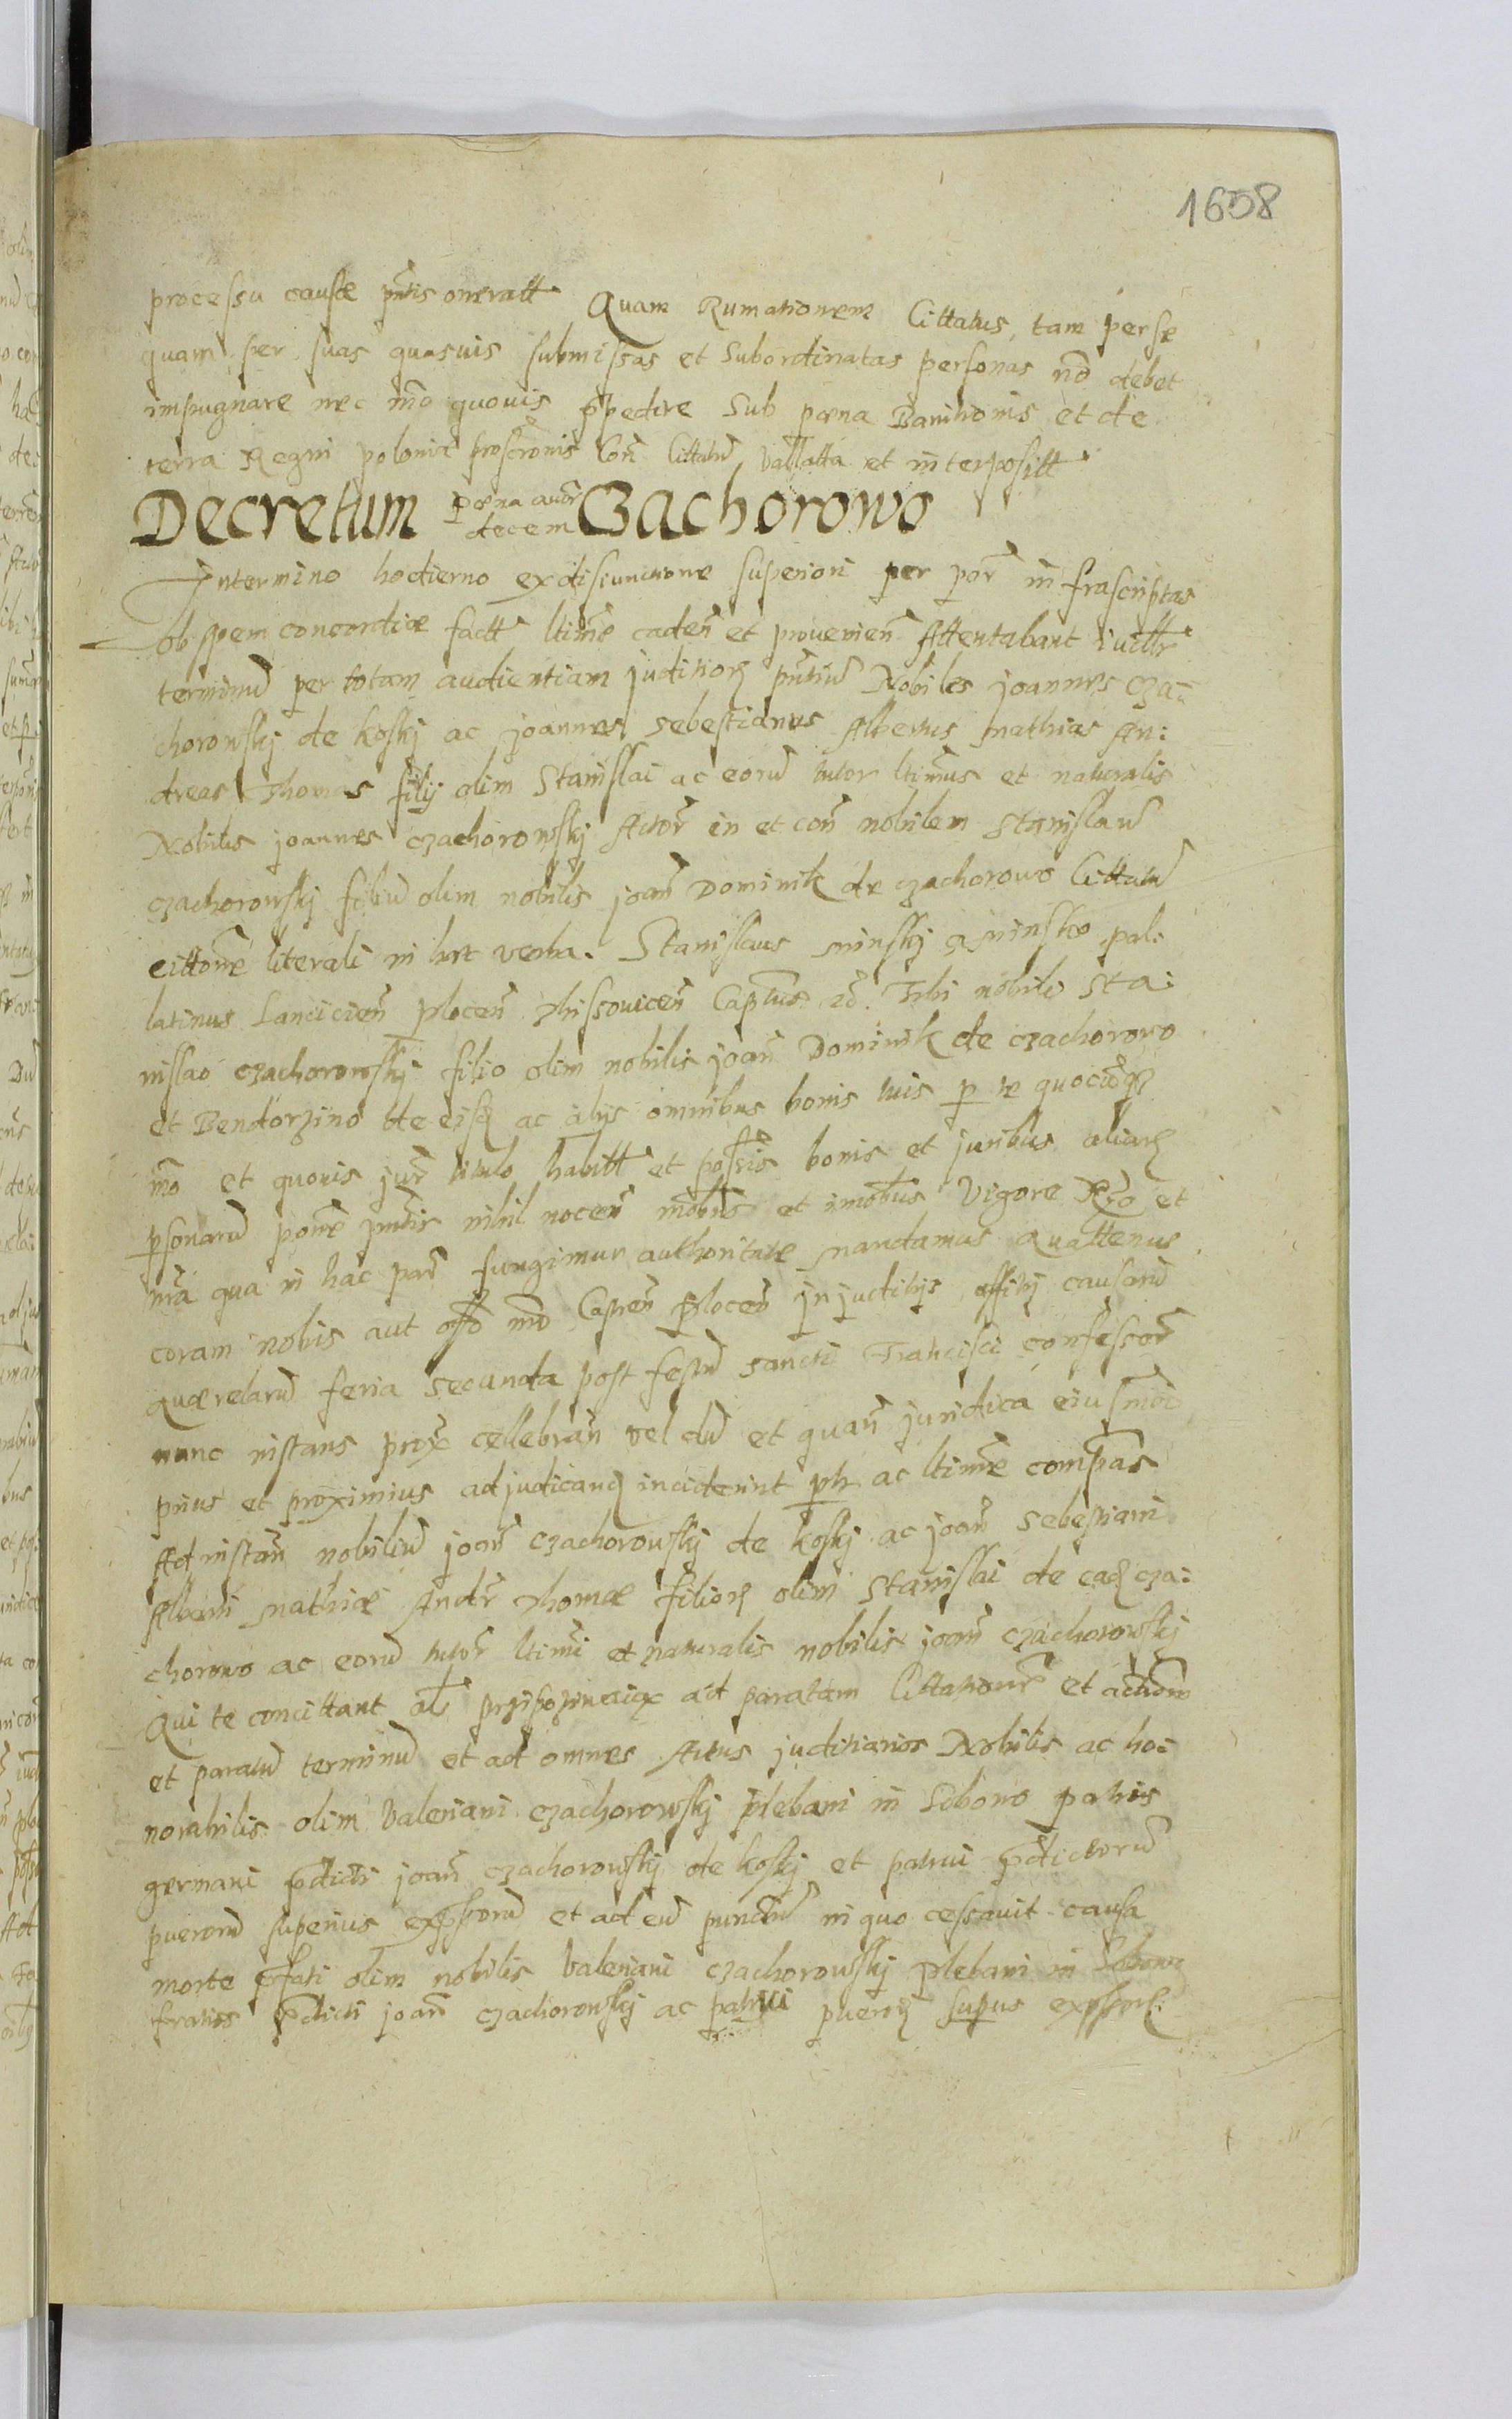 1658
processu causæ pñtis oneratt. Quam Rumationem Cittatus, tam per se
quam per suas quasuis submissas et subordinatas personas nõ debet
impugnare nec mõ quouis ppedire sub pœna Banitionis et de
terra Regni poloniæ proscronis Coñ Cittatũ vallatta et interposítt
Decretum pœna
decem Czachorowo
In termino hodierno ex disiunctione superiori per por̃ infrascriptas
ob spem concordiæ factt ltime cadeñ et provenieñ Attentabant
terminũ per totam audientiam juditiorꝫ pñtiũ Nobiles joannes cza-
chorowskj de koskj ac joannes sebestianus Albertus mathias An:
dreas Thomas filij olim Stanislai ac eorũ tutor ltimus et naturalis
Nobilis joannes czachorowskj Actor̃ in et coñ nobilem Stanislaũ
czachorowskj filiũ olim nobilis joañ Dominik de czachorowo Cittatũ
cittõne literali in hæc verba. Stanislaus minskj de minsko pal:
latinus Lancicieñ ploceñ Capitneus Tibi nobili Sta:
nislao czachorowskj filio olim nobilis joañ Dominik de czachorowo
et Bendorzino de eisdꝫ ac alijs omnibus bonis tuis p te quociũqꝫ
mõ et quouis jur̃ titulo habitt et possis bonis et juribus aliarꝫ
psonarũ põne pñtis nihil noceñ mobũs et imobũs Vigore Rgia et
nrã qua in hac par̃ fungimur authoritate mandamus quattenus
coram nobis aut offõ nrõ Capneñ ploceñ in juditijs offitij causarũ
quærelarũ feria secunda post festũ sancti Francisci confessor̃
nunc instans prox̃ cellebrañ vel dũ et quañ juridica eiusmõi
prius et proximius adjudicanꝫ inciderint plr ac ltime compãs
Ad instañ nobiliũ joañ czachorowskj de koskj ac joañ sebestiani
Alberti mathiæ Andr̃ Thomæ filiorꝫ olim Stanislai de eadꝫ cza:
chorowo ac eorũ tutor̃ ltimi et naturalis nobilis joañ czachorowskj
Qui te concittant als̃ ad paratam Cittationẽ et actiõm
et paratũ terminũ et ad omnes Actus juditiarios Nobilis ac ho:
norabilis olim Valeriani czachorowskj plebani in patris
germani pdicti joañ czachorowskj de koskj et patrui pdictorũ
puerorũ superius expssorũ et ad eũ punctũ in quo cessauit causa
morte pfati olim nobilis Valeriani czachorowskj plebani in
fratris pdicti joañ czachorowskj ac patrui puerorꝫ supius expssorꝫ